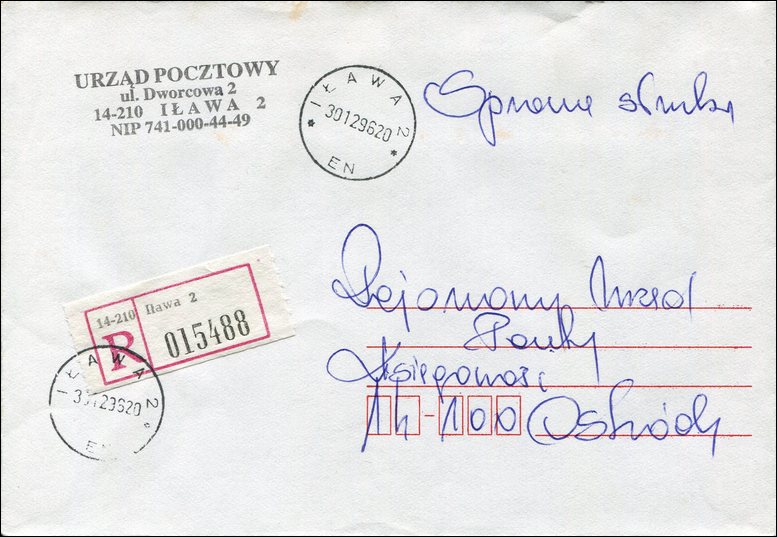 URZĄD POCZTOWY
ul. Dworcowa 2
14-210 IŁAWA 2
NIP 741-000-44-49
IŁAWA 2
30129620
* *
EN
Sprawa służb.
Rejonowy Urząd
Poczty
Księgowość
14-100 Ostróda
14-210 Iława 2
R 015488
IŁAWA 2
30129620
*
EN